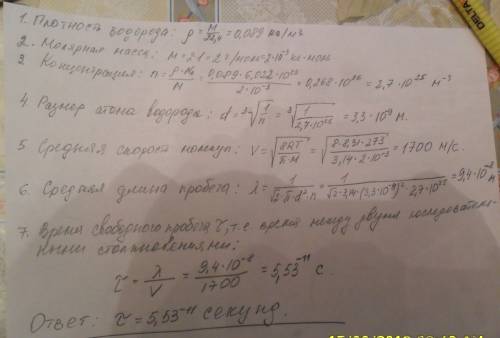 1. Плотность водорода: ρ = M/22,4 = 0,089 кг/м3
2. Молярная масса: M = 2·1 = 2 г/моль = 2·10⁻³ кг·моль
3 Концентрация: n = ρ·Nа/M = 0,089·6,022·10²³/2·10⁻³ = 0,268·10²⁶ = 2,7·10²⁵ м⁻³
4. Размер атома водорода: d = ³√1/n = ³√1/2,7·10²⁵ = 3,3·10⁻⁹ м.
5 Средняя скорость молекул: V = √8RT/π·M = √8·8,31·273/3,14·2·10⁻³ = 1700 м/с.
6. Средняя длина пробега: λ = 1/√2·π·d²·n = 1/√2·3,14·(3,3·10⁻⁹)²·2,7·10²⁵ = 9,4·10⁻⁸ м
7. Время свободного пробега τ, т.е. время между двумя последователь-
ными столкновениями:
τ = λ/V = 9,4·10⁻⁸/1700 = 5,53⁻¹¹ с.
Ответ: τ = 5,53⁻¹¹ секунд.